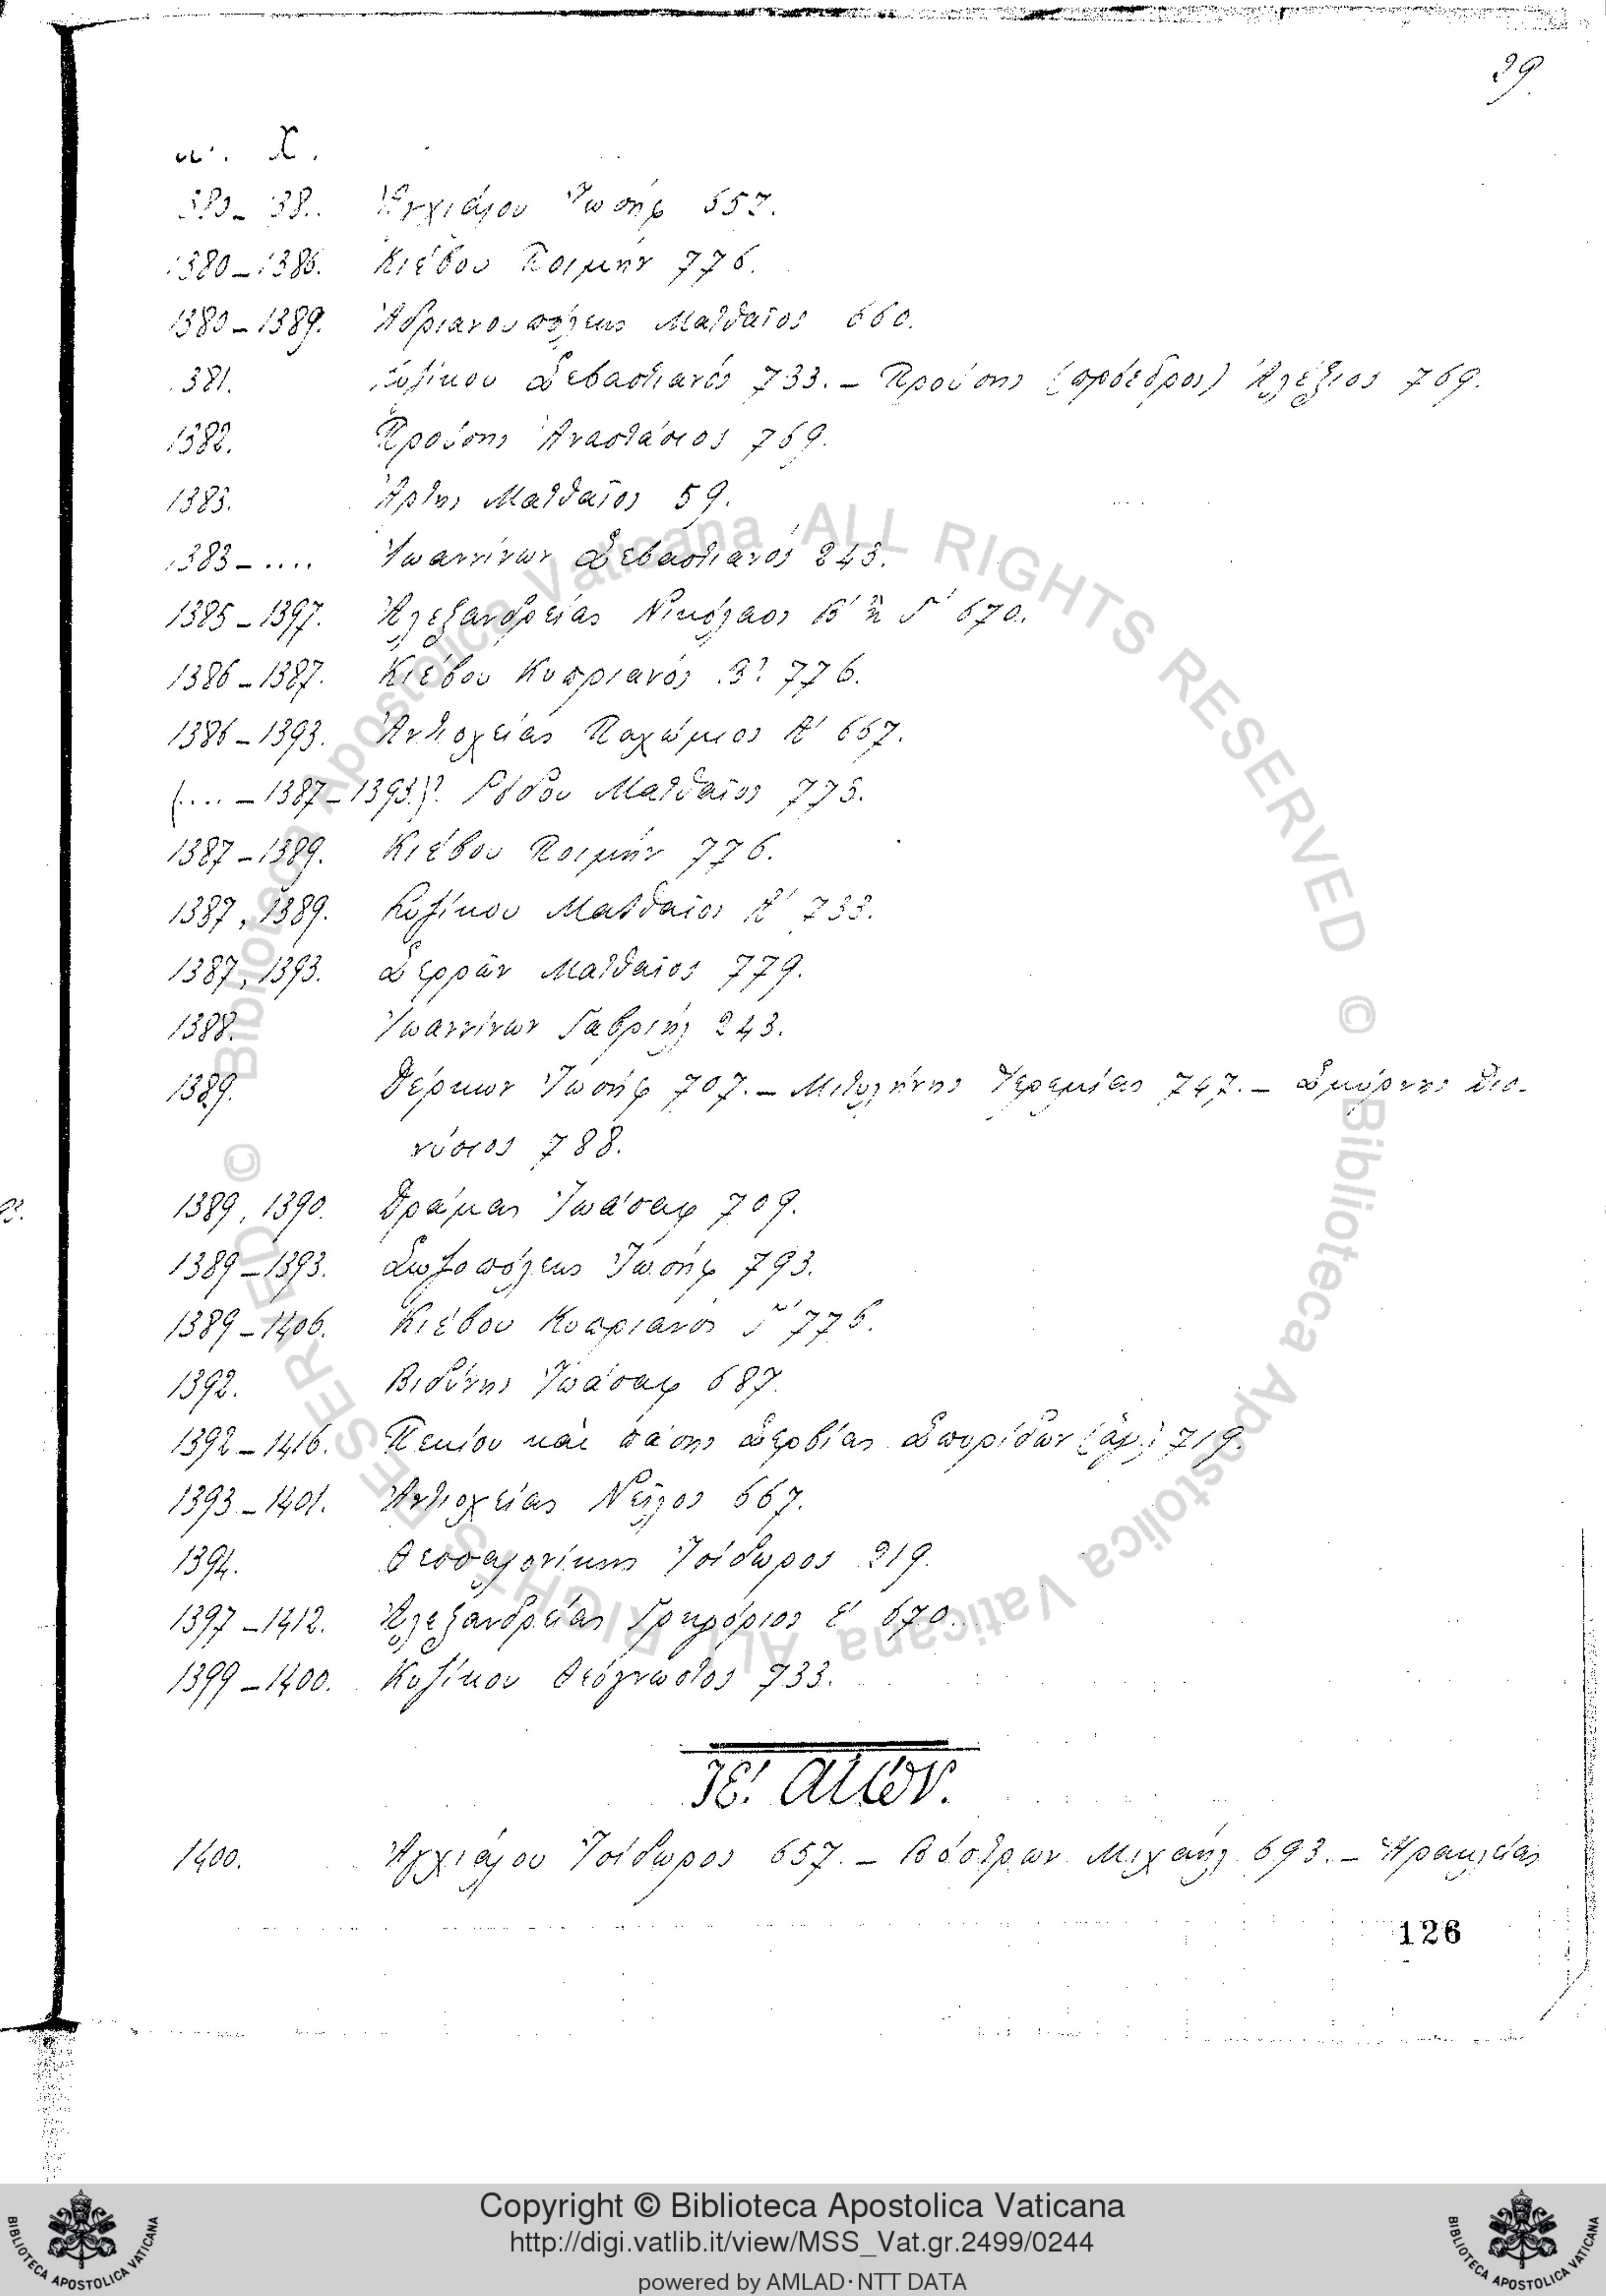 29.
μ. Χ.
Ἀγχιάλου Ἰωσήφ 657.
1380–1385. Κιέβου Ποιμήν 776.
1380–1389. Ἀδριανουπόλεως Ματθαῖος 660.
1381. Κυζίκου Σεβαστιανός 733. – Προύσης (πρόεδρος) Ἀλέξιος 769.
1382. Προύσης Ἀναστάσιος 769.
1383. Ἄρτης Ματθαῖος 59.
1383–.... Ἰωαννίνων Σεβαστιανός 243.
1385–1397. Ἀλεξανδρείας Νικόλαος Β′ ἢ Γ′ 670.
1386–1387. Κιέβου Κυπριανός Β? 776.
1386–1393. Ἀντιοχείας Παχώμιος Α′ 667.
(....–1387–1393)? Ρόδου Ματθαῖος 775.
1387–1389. Κιέβου Ποιμήν 776.
1387, 1389. Κυζίκου Ματθαῖος Α′ 733.
1387, 1393. Σερρῶν Ματθαῖος 779.
1388. Ἰωαννίνων Γαβριήλ 243.
1389. Δέρκων Ἰωσήφ 707. – Μιτυλήνης Ἱερεμίας 747. – Σμύρνης Διο-
νύσιος 788.
1389, 1390. Δράμας Ἰωάσαφ 709.
1389–1393. Σωζοπόλεως Ἰωσήφ 793.
1389–1406. Κιέβου Κυπριανός Γ′ 776.
1392. Βιδύνης Ἰωάσαφ 687.
1392–1416. Πεκίου καὶ πάσης Σερβίας Σπυρίδων 719.
1393–1401. Ἀντιοχείας Νεῖλος 667.
1394. Θεσσαλονίκης Ἰσίδωρος 219.
1397–1412. Ἀλεξανδρείας Γρηγόριος Ε′ 670.
1399–1400. Κυζίκου Θεόγνωστος 733.
ΙΕ′. αἰών.
1400. Ἀγχιάλου Ἰσίδωρος 657. – Βόστρων Μιχαήλ 693. – Ἡρακλείας
126
© Biblioteca Apostolica Vaticana ALL RIGHTS RESERVED © Biblioteca Apostolica Vaticana ALL RIGHTS RESERVED
Copyright © Biblioteca Apostolica Vaticana
http://digi.vatlib.it/view/MSS_Vat.gr.2499/0244
powered by AMLAD·NTT DATA
BIBLIOTECA APOSTOLICA VATICANA
BIBLIOTECA APOSTOLICA VATICANA